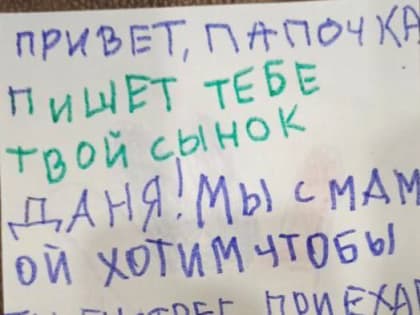 ПРИВЕТ, ПАПОЧКА
ПИШЕТ ТЕБЕ
ТВОЙ СЫНОК
ДАНЯ! МЫ С МАМ
ОЙ ХОТИМ ЧТОБЫ